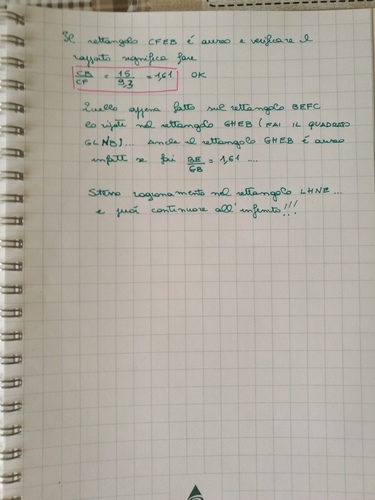 Il rettangolo CFEB è aureo e verificare il
rapporto significa fare
CB/CF = 15/9,3 = 1,61 OK
Quello appena fatto sul rettangolo BEFC
lo ripeti nel rettangolo GHEB (FAI IL QUADRATO
GLNB)... Anche il rettangolo GHEB è aureo
infatti se fai BE/GB = 1,61 ....
Stesso ragionamento nel rettangolo LHNE ...
e puoi continuare all'infinito!!!